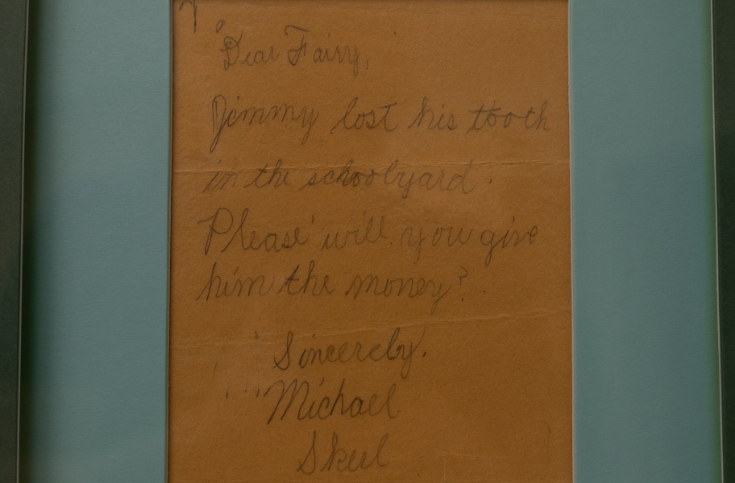 Dear Fairy,
Jimmy lost his tooth
in the schoolyard.
Please will you give
him the money?
Sincerely.
Michael
Skeel